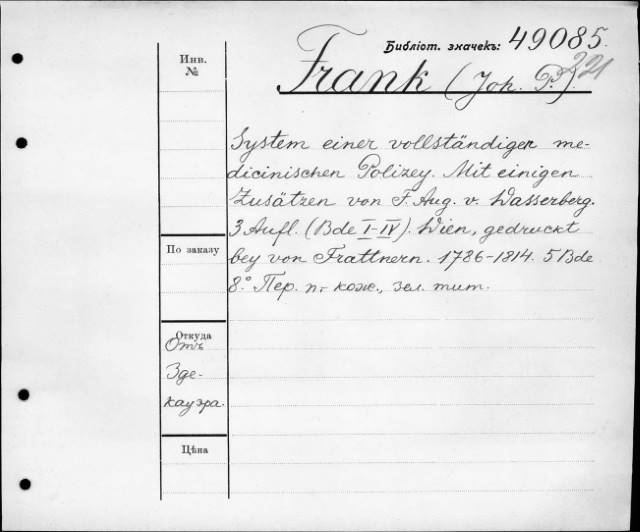 Библіот. значекъ: 49085.
221
Инв.
№
Frank (Joh. P.)
System einer vollständigen me-
dicinischen Polizey. Mit einigen
Zusätzen von F. Aug. v. Wasserberg.
3 Aufl. (Bde I-IV). Wien, gedruckt
bey von Trattnern. 1786-1814. 5 Bde
8.° Пер. п.- кож., зол. тит.
По заказу
Откуда
Отъ
Зде-
кауэра.
Цѣна